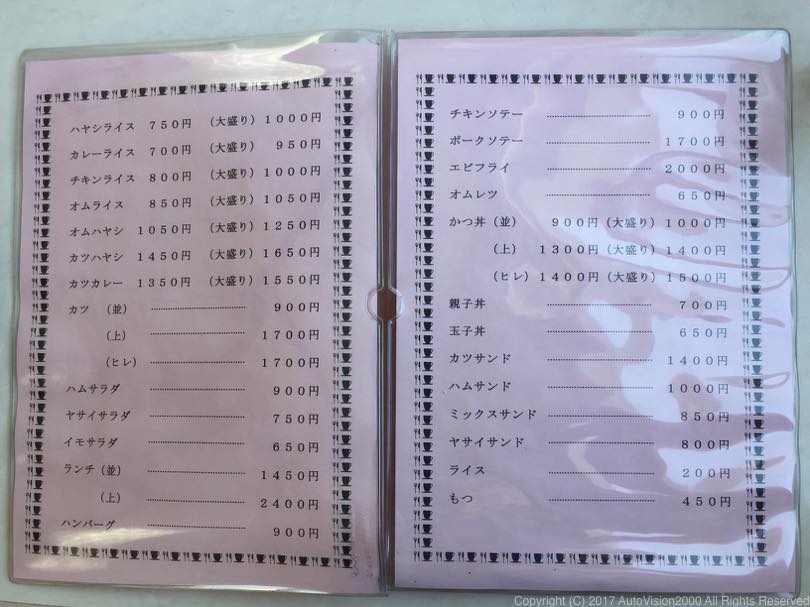 ハヤシライス ７５０円 （大盛り）１０００円
カレーライス ７００円 （大盛り） ９５０円
チキンライス ８００円 （大盛り）１０００円
オムライス ８５０円 （大盛り）１０５０円
オムハヤシ １０５０円 （大盛り）１２５０円
カツハヤシ １４５０円 （大盛り）１６５０円
カツカレー １３５０円 （大盛り）１５５０円
カツ （並） ………………………… ９００円
（上） ………………………… １７００円
（ヒレ） ………………………… １７００円
ハムサラダ ………………………… ９００円
ヤサイサラダ ………………………… ７５０円
イモサラダ ………………………… ６５０円
ランチ（並） ………………………… １４５０円
（上） ………………………… ２４００円
ハンバーグ ………………………… ９００円
チキンソテー ………………………… ９００円
ポークソテー ………………………… １７００円
エビフライ ………………………… ２０００円
オムレツ ………………………… ６５０円
かつ丼（並） ９００円（大盛り）１０００円
（上） １３００円（大盛り）１４００円
（ヒレ）１４００円（大盛り）１５００円
親子丼 ………………………… ７００円
玉子丼 ………………………… ６５０円
カツサンド ………………………… １４００円
ハムサンド ………………………… １０００円
ミックスサンド ………………………… ８５０円
ヤサイサンド ………………………… ８００円
ライス ………………………… ２００円
もつ ………………………… ４５０円
Copyright (C) 2017 AutoVision2000 All Rights Reserved.